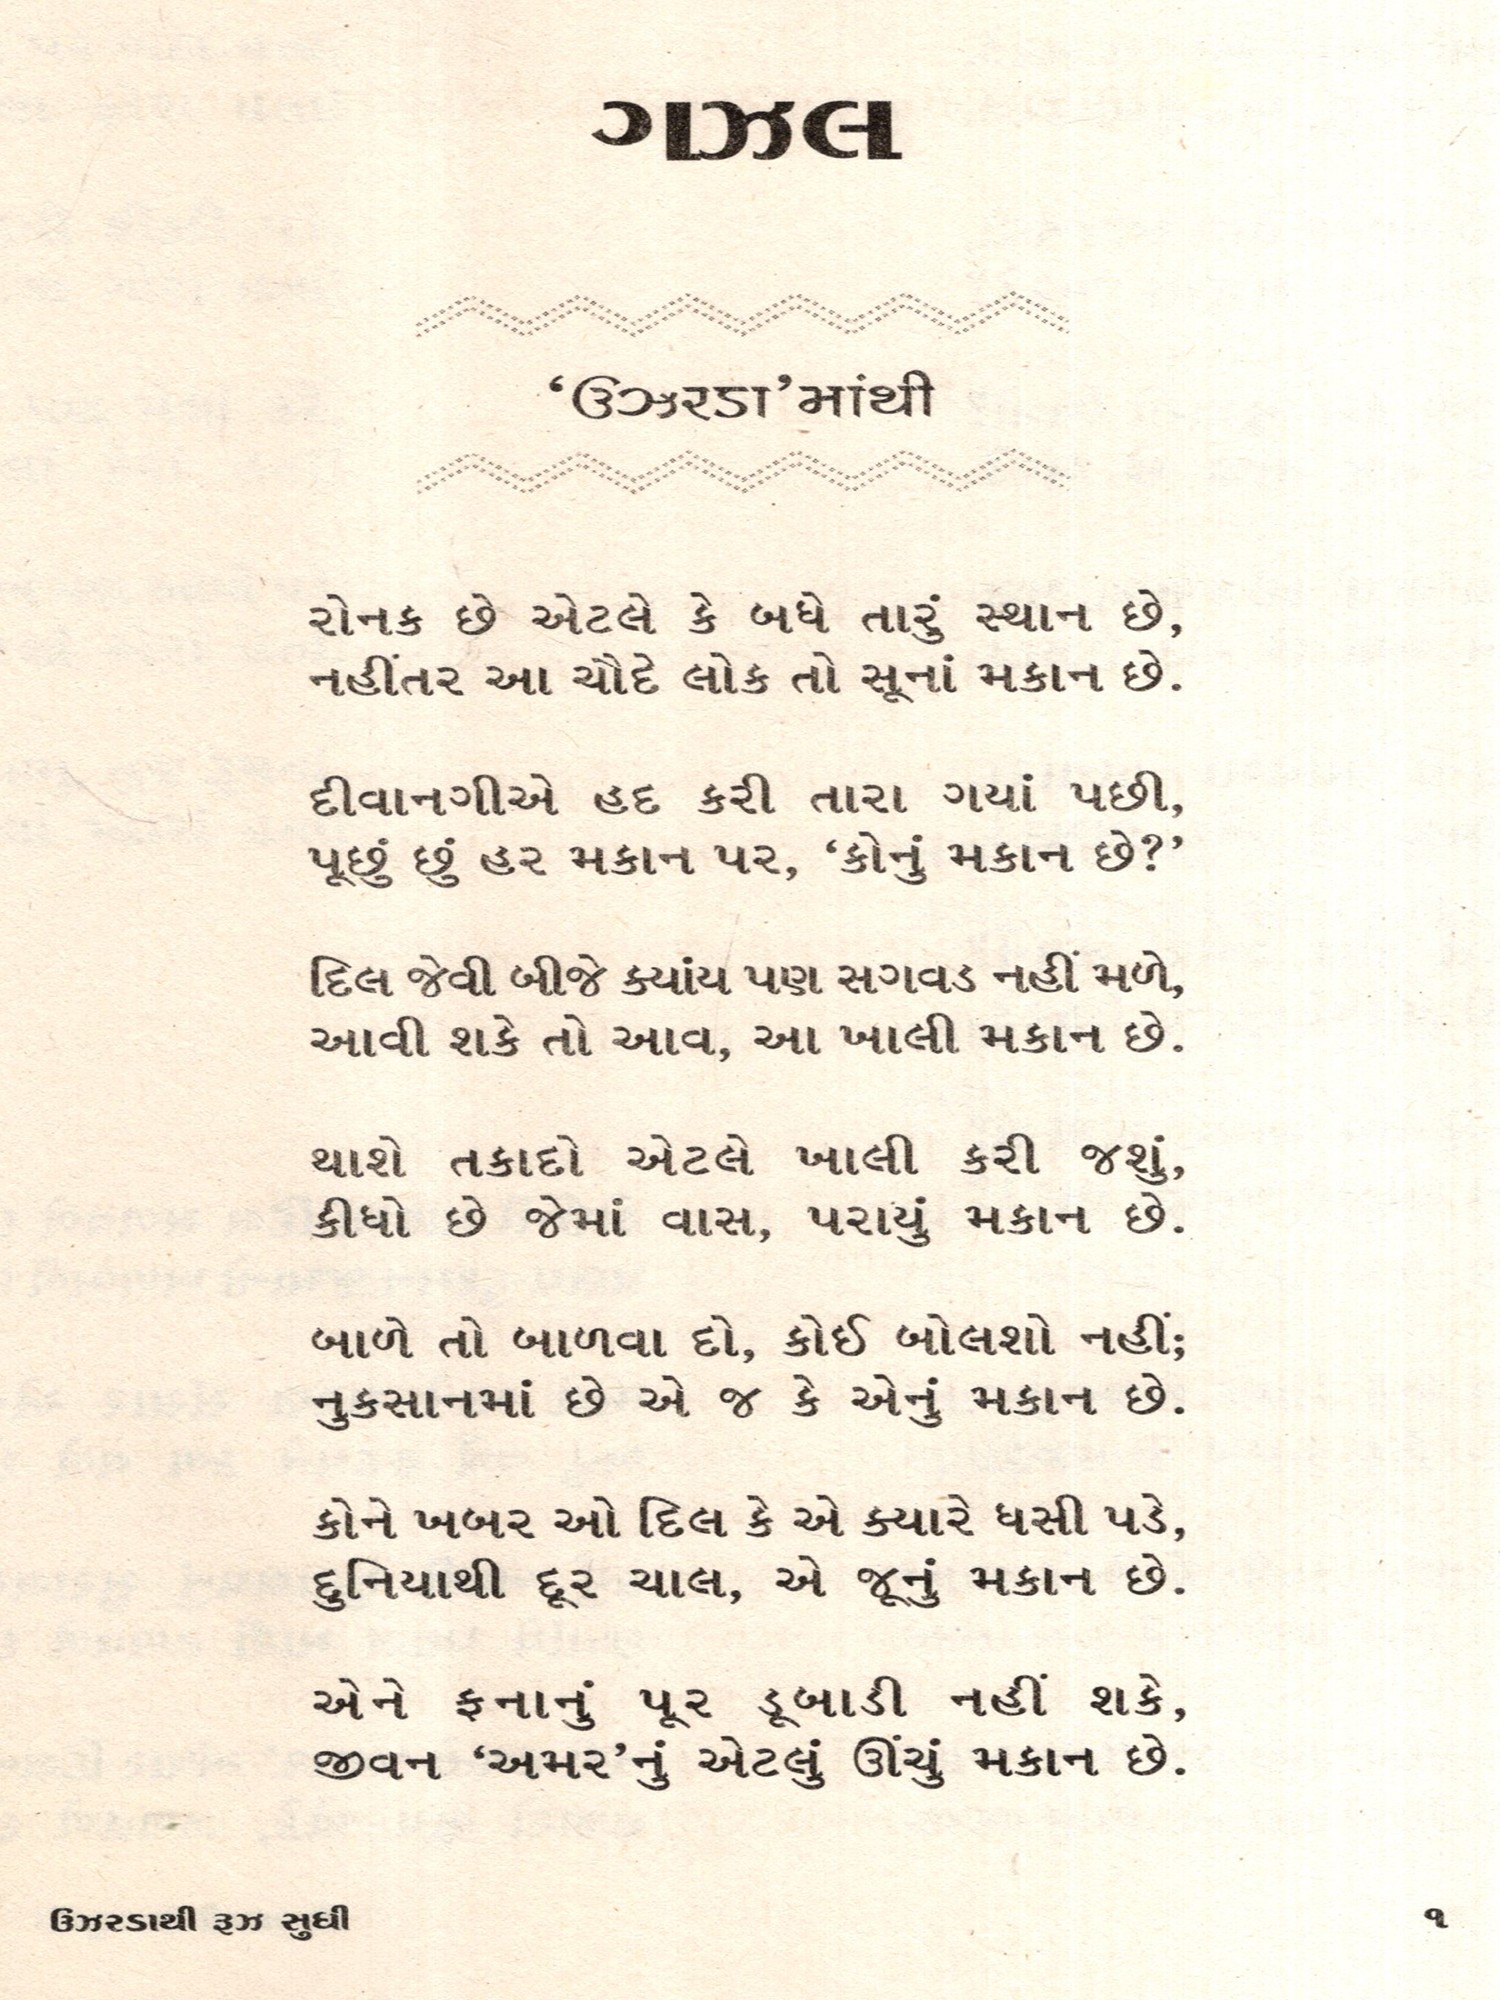 ગઝલ
‘ઉઝરડા’માંથી
રોનક છે એટલે કે બધે તારું સ્થાન છે,
નહીંતર આ ચૌદે લોક તો સૂનાં મકાન છે.
દીવાનગીએ હદ કરી તારા ગયાં પછી,
પૂછું છું હર મકાન પર, ‘કોનું મકાન છે?’
દિલ જેવી બીજે ક્યાંય પણ સગવડ નહીં મળે,
આવી શકે તો આવ, આ ખાલી મકાન છે.
થાશે તકાદો એટલે ખાલી કરી જશું,
કીધો છે જેમાં વાસ, પરાયું મકાન છે.
બાળે તો બાળવા દો, કોઈ બોલશો નહીં;
નુકસાનમાં છે એ જ કે એનું મકાન છે.
કોને ખબર ઓ દિલ કે એ ક્યારે ધસી પડે,
દુનિયાથી દૂર ચાલ, એ જૂનું મકાન છે.
એને ફનાનું પૂર ડૂબાડી નહીં શકે,
જીવન ‘અમર’નું એટલું ઊંચું મકાન છે.
ઉઝરડાથી રૂઝ સુધી
૧